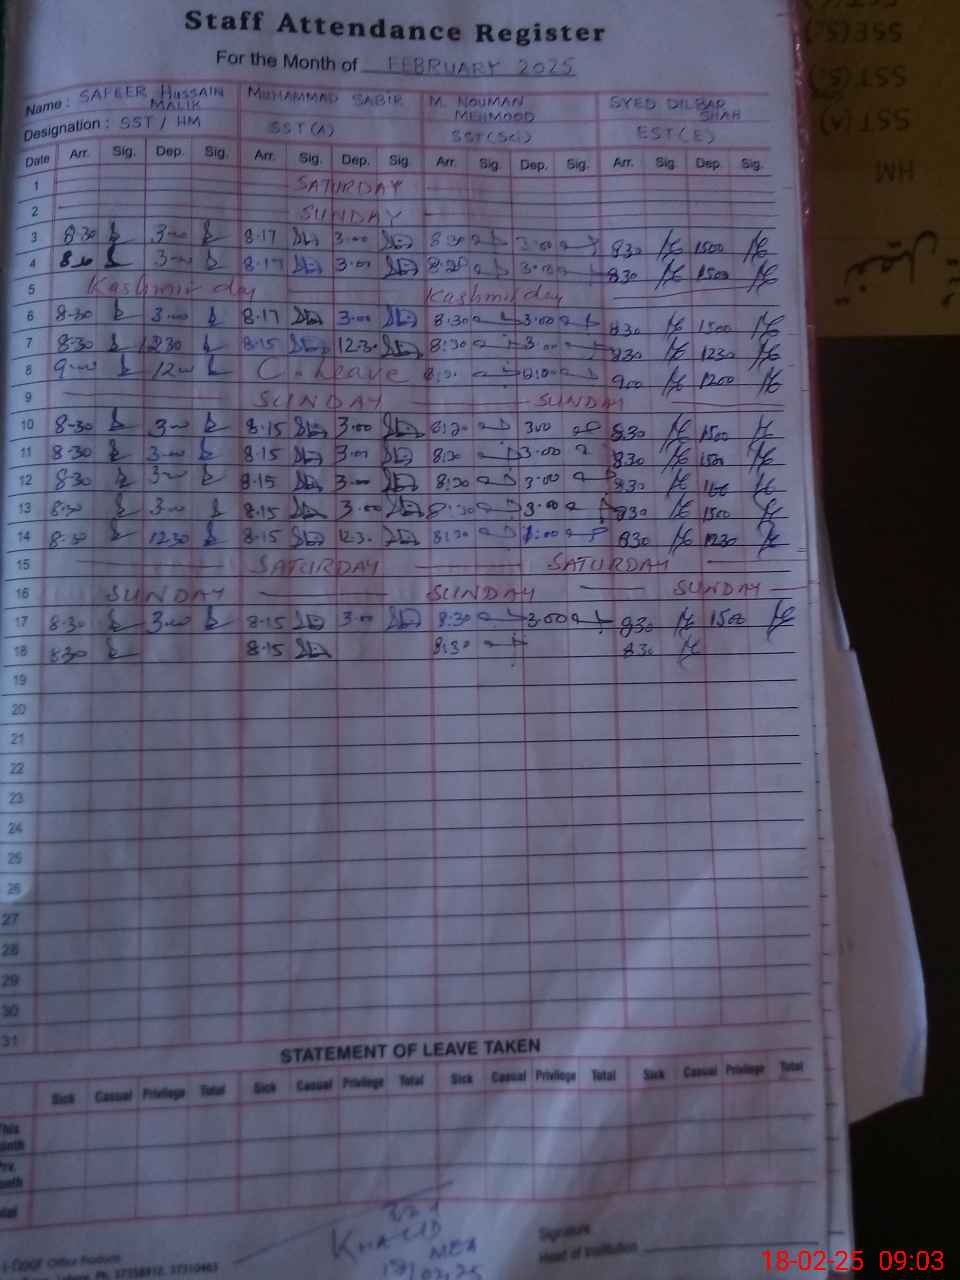 Staff Attendance Register
For the Month of FEBRUARY 2025
Name : SAFEER HUSSAIN MALIK MUHAMMAD SABIR M. NOUMAN MEHMOOD SYED DILBAR SHAH
Designation : SST / HM SST(A) SST(Sci) EST(E)
Date Arr. Sig. Dep. Sig. Arr. Sig. Dep. Sig. Arr. Sig. Dep. Sig. Arr. Sig. Dep. Sig.
1 SATURDAY
2 SUNDAY
3 8.30 3.00 8.17 3.00 8:30 3.00 830 1500
4 3.00 8.17 3.00 8:30 3.00 830 1500
5 Kashmir day Kashmir day
6 8-30 3.00 8.17 3.00 8:30 3.00 830 1500
7 8-30 1230 8.15 12.30 8:30 3.00 830 1230
8 9.00 1200 C. Leave 900 1200
9 SUNDAY SUNDAY
10 8-30 3.00 8.15 3.00 8:30 300 830 1500
11 8-30 3.00 8.15 3.00 8:30 3.00 830 1500
12 830 3.00 8.15 3.00 8:30 3.00 830
13 8.30 3.00 8.15 3.00 8:30 3.00 830 1500
14 8.30 1230 8.15 12.30 8:30 830 1230
15 SATURDAY SATURDAY
16 SUNDAY SUNDAY SUNDAY
17 8.30 3.00 8.15 3.00 8:30 3.00 830 1500
18 830 8.15 8:30 830
19
20
21
22
23
24
25
26
27
28
29
30
31
STATEMENT OF LEAVE TAKEN
Sick Casual Privilege Total Sick Casual Privilege Total Sick Casual Privilege Total Sick Casual Privilege Total
This
Prv.
Signature
Head of Institution
KHALID
MEA
Office Products
Ph. 37358912, 37310463
SST(S)
SST(A)
HM
18-02-25 09:03